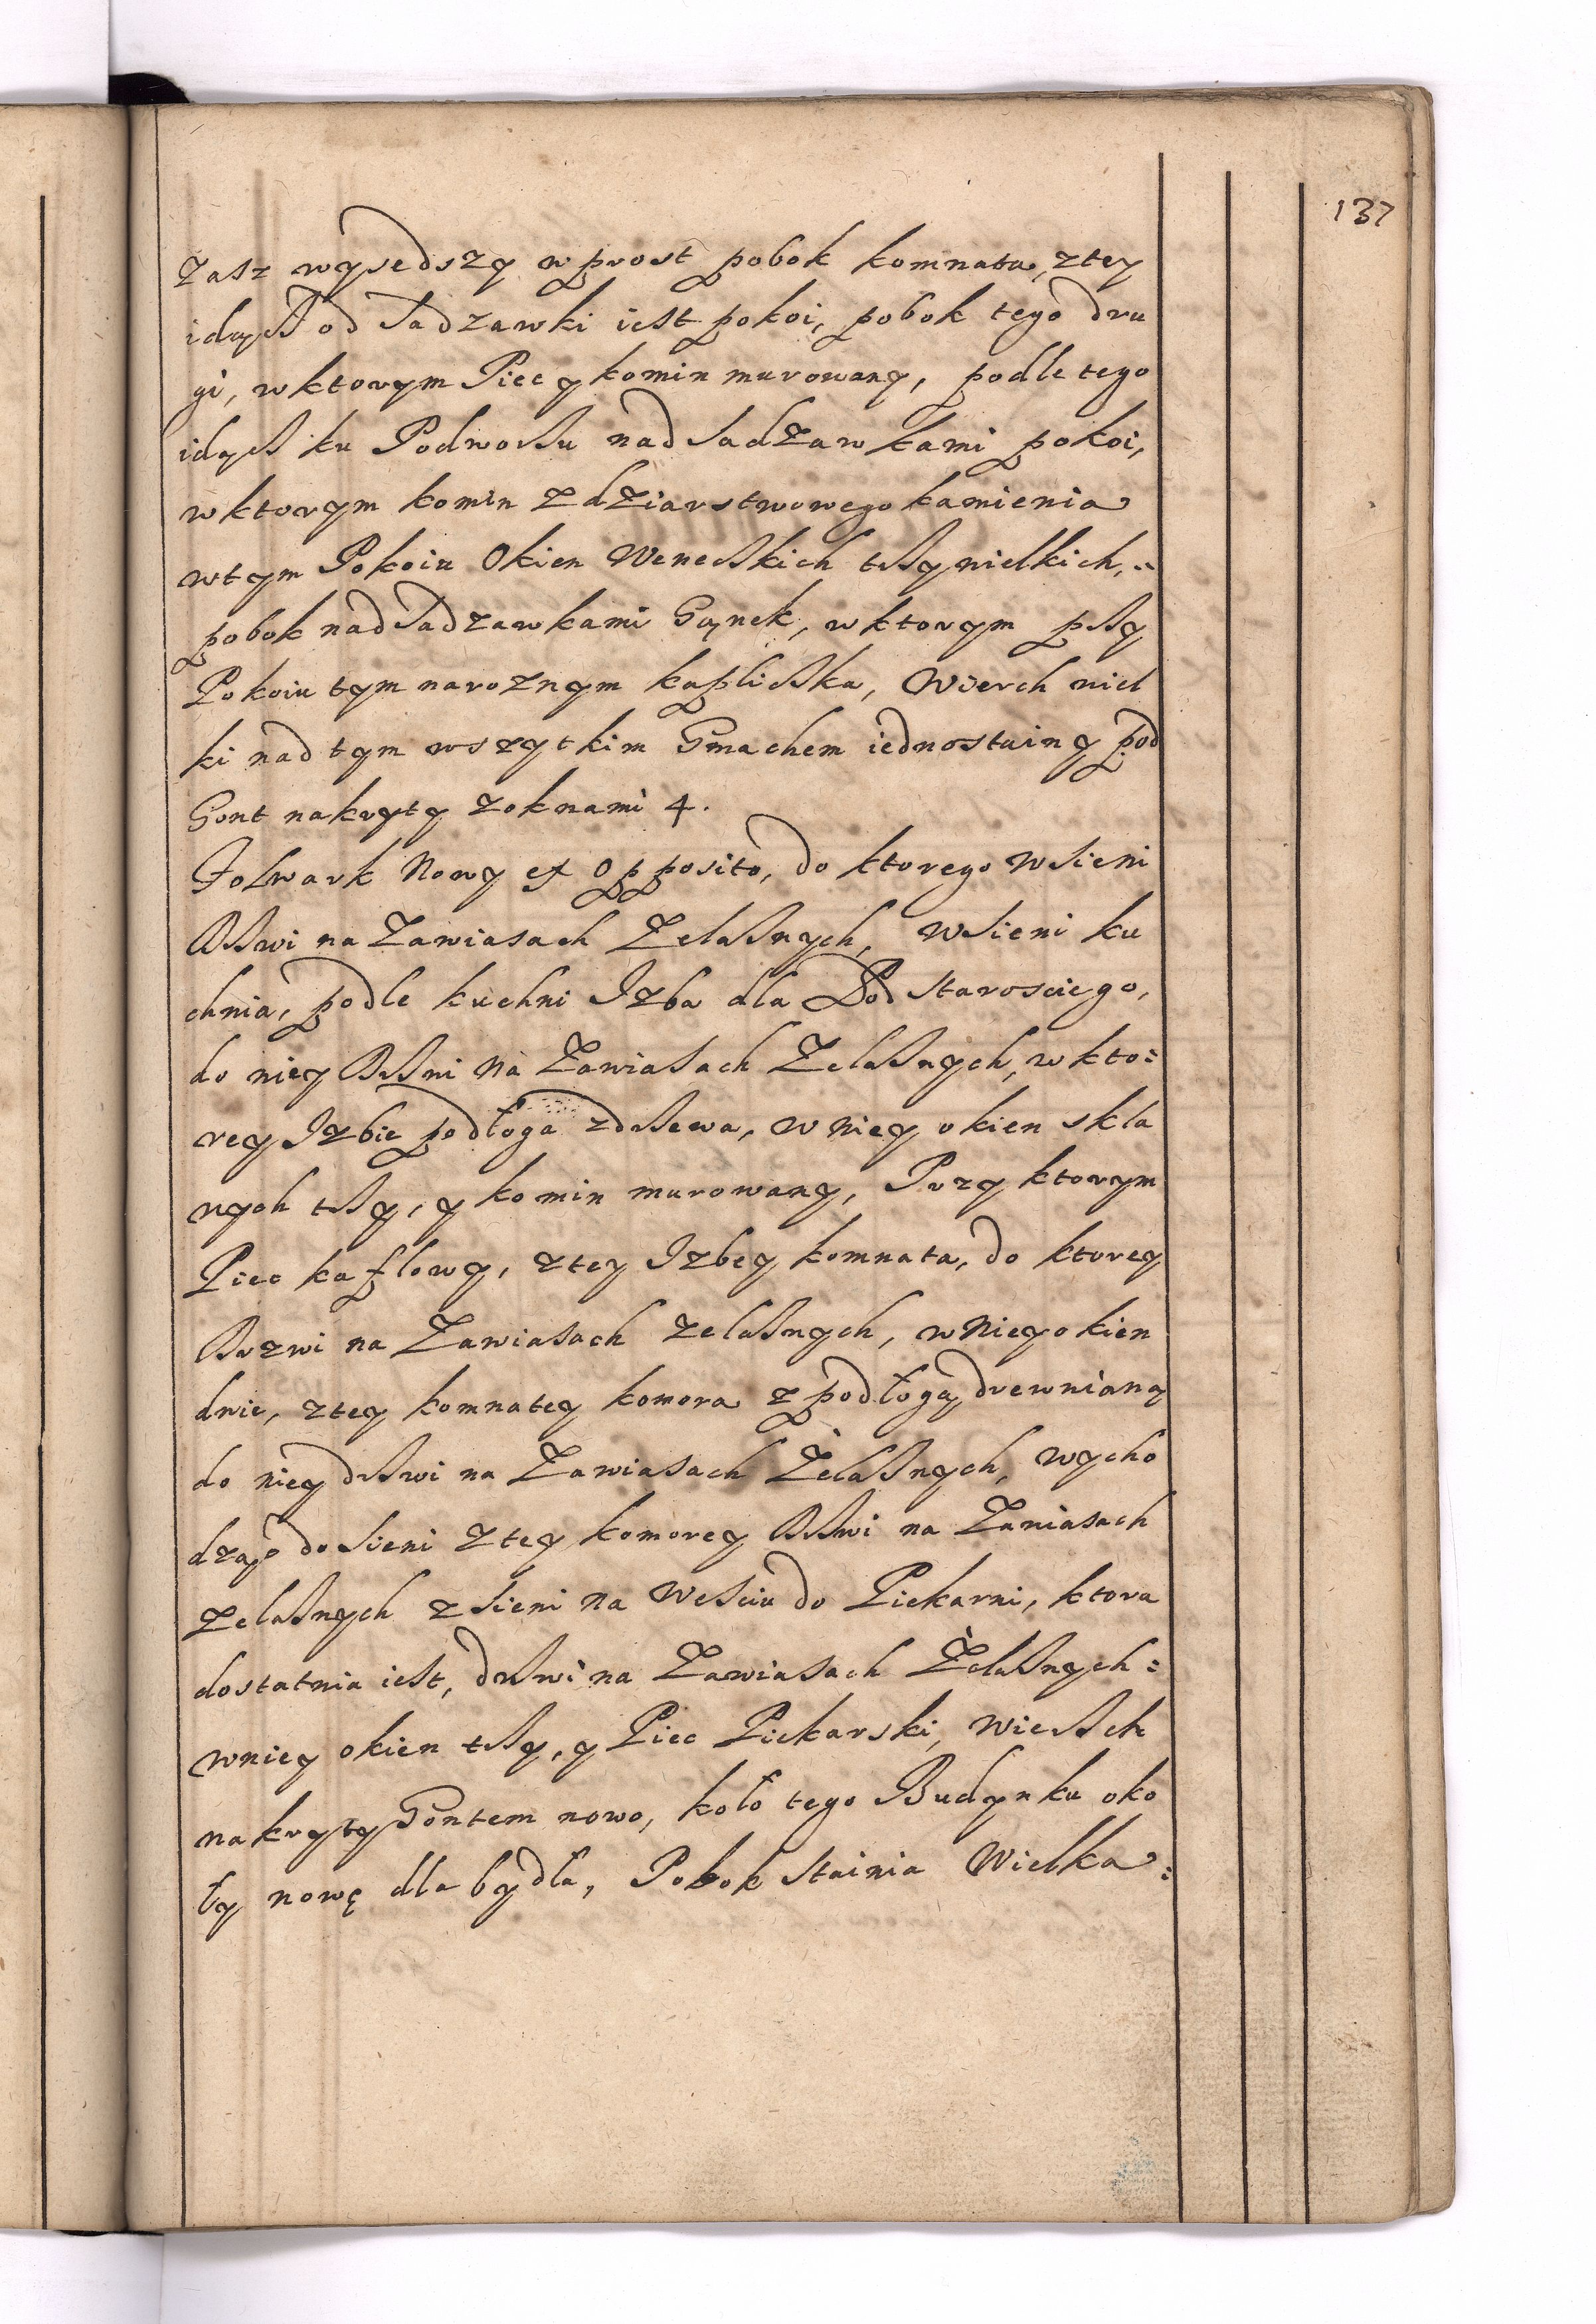 137
Zasz wyszedszy w prost pobok komnata, z tey
idącz od Sadzawki iest pokoi, pobok tego dru
gi, w ktorym Piec y komin murowany, podle tego
idącz ku Podworzu nad Sadzawkami pokoi,
w ktorym komin z dziarstwowego kamienia
w tym Pokoiu Okien Weneckich trzy wielkich,
pobok nad Sadzawkami Gąnek, w ktorym przy
Pokoiu tym naroznym kapliczka, Wierch wiel
ki nad tym wszytkim Gmachem iednostainy pod
Gont nakryty z oknami 4.
Folwark Nowy ex Opposito, do ktorego w Sieni
Drzwi na Zawiasach Zelaznych, W Sieni ku
chnia, podle kuchni Izba dla Pod Starosciego,
do niey Drzwi na Zawiasach Zelaznych, w kto:
rey Izbie podłoga z drzewa, w niey okien skla
nych trzy, y komin murowany, Przy ktorym
Piec kaflowy, z tey Izbey komnata, do ktorey
Drzwi na Zawiasach zelaznych, w niey okien
dwie, z tey komnatey komora z podłogą drewnianą
do niey drzwi na Zawiasach Żelaznych, wycho
dząc do Sieni z tey komorey Drzwi na Zawiasach
zelaznych z Sieni na Wesciu do Piekarni, ktora
dostatnia iest, drzwi na Zawiasach Żelaznych:
w niey okien trzy, y Piec Piekarski, Wierzch
nakryty Gontem nowo, koło tego Budynku oko
ły nowę dla bydła, Pobok Stainia Wielka: